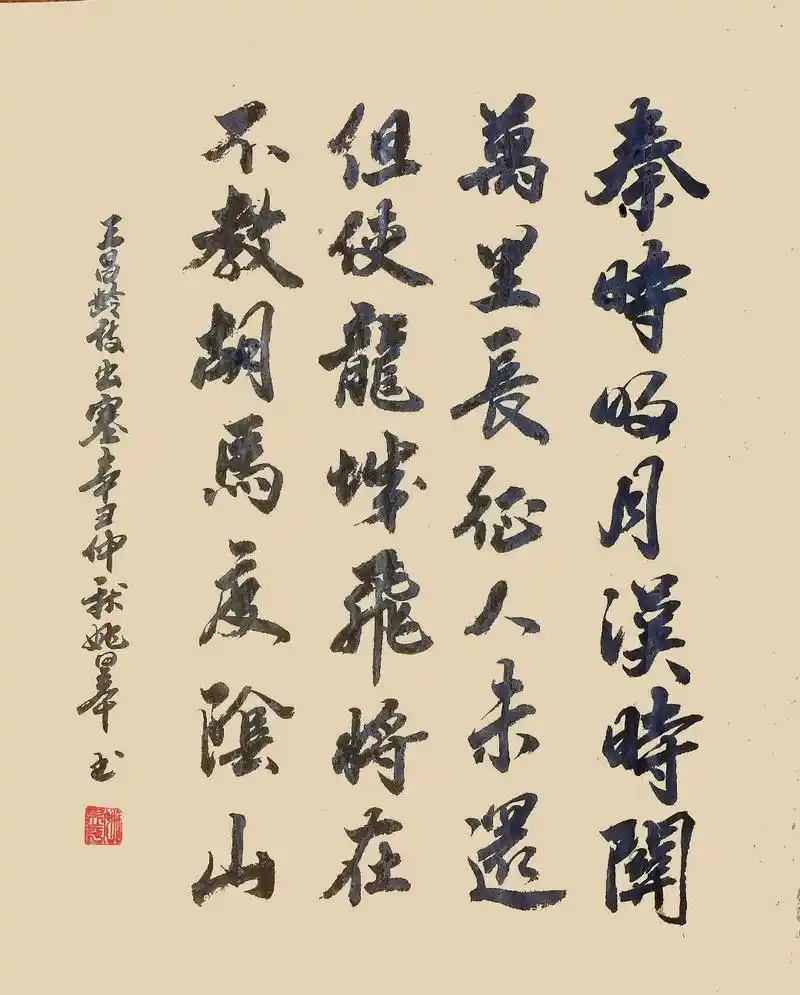 秦時明月漢時關
萬里長征人未還
但使龍城飛將在
不教胡馬度陰山
王昌龄诗出塞辛丑仲秋姚暴书